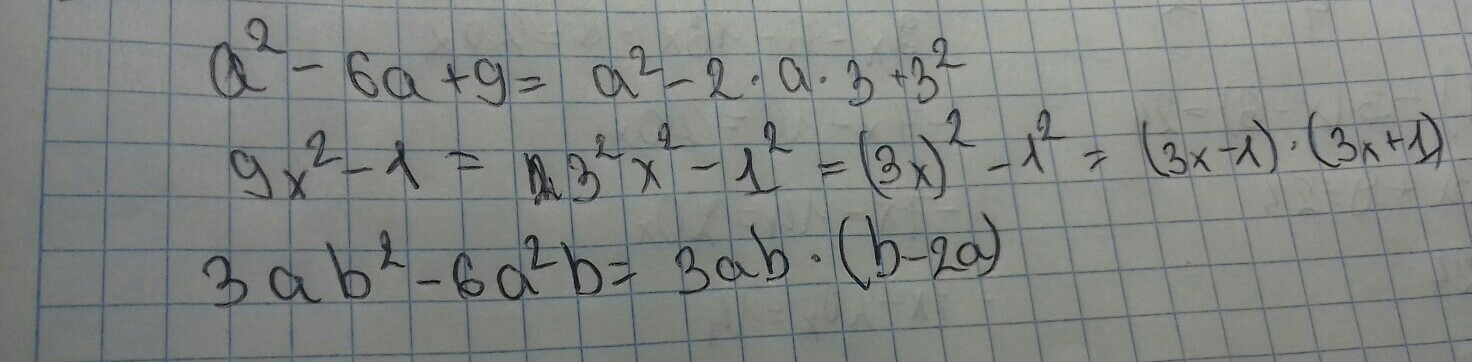 a² - 6a + 9 = a² - 2 · a · 3 + 3²
9x² - 1 = 3²x² - 1² = (3x)² - 1² = (3x - 1) · (3x + 1)
3ab² - 6a²b = 3ab · (b - 2a)